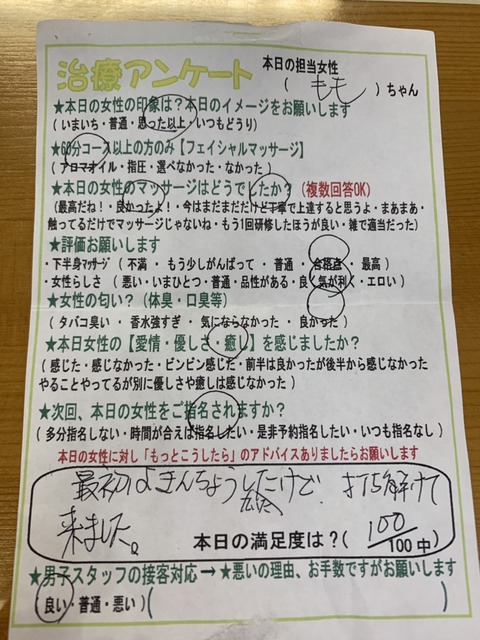 治療アンケート
本日の担当女性
( モモ )ちゃん
★本日の女性の印象は？本日のイメージをお願いします
(いまいち・普通・思った以上・いつもどうり)
★60分コース以上の方のみ【フェイシャルマッサージ】
(アロマオイル・指圧・選べなかった・なかった)
★本日の女性のマッサージはどうでしたか？(複数回答OK)
(最高だね！・良かったよ！・今はまだまだだけど丁寧で上達すると思うよ・まあまあ・
触ってるだけでマッサージじゃないね・もう1回研修したほうが良い・雑で適当だった)
★評価お願いします
・下半身ﾏｯｻｰｼﾞ ( 不満 ・ もう少しがんばって ・ 普通 ・ 合格点 ・ 最高 )
・女性らしさ ( 悪い・いまひとつ・普通・品性がある・良く気が利く・エロい )
★女性の匂い？(体臭・口臭等)
( タバコ臭い ・ 香水強すぎ ・ 気にならなかった ・ 良かった )
★本日女性の【愛情・優しさ・癒し】を感じましたか？
(感じた・感じなかった・ビンビン感じた・前半は良かったが後半から感じなかった
やることやってるが別に優しさや癒しは感じなかった )
★次回、本日の女性をご指名されますか？
(多分指名しない・時間が合えば指名したい・是非予約指名したい・いつも指名なし)
本日の女性に対し「もっとこうしたら」のアドバイスありましたらお願いします
最初はきんちょうしたけど 打ち解けて
来ました。
本日の満足度は？( 100/100中)
★男子スタッフの接客対応→★悪いの理由、お手数ですがお願いします
(良い・普通・悪い)( )